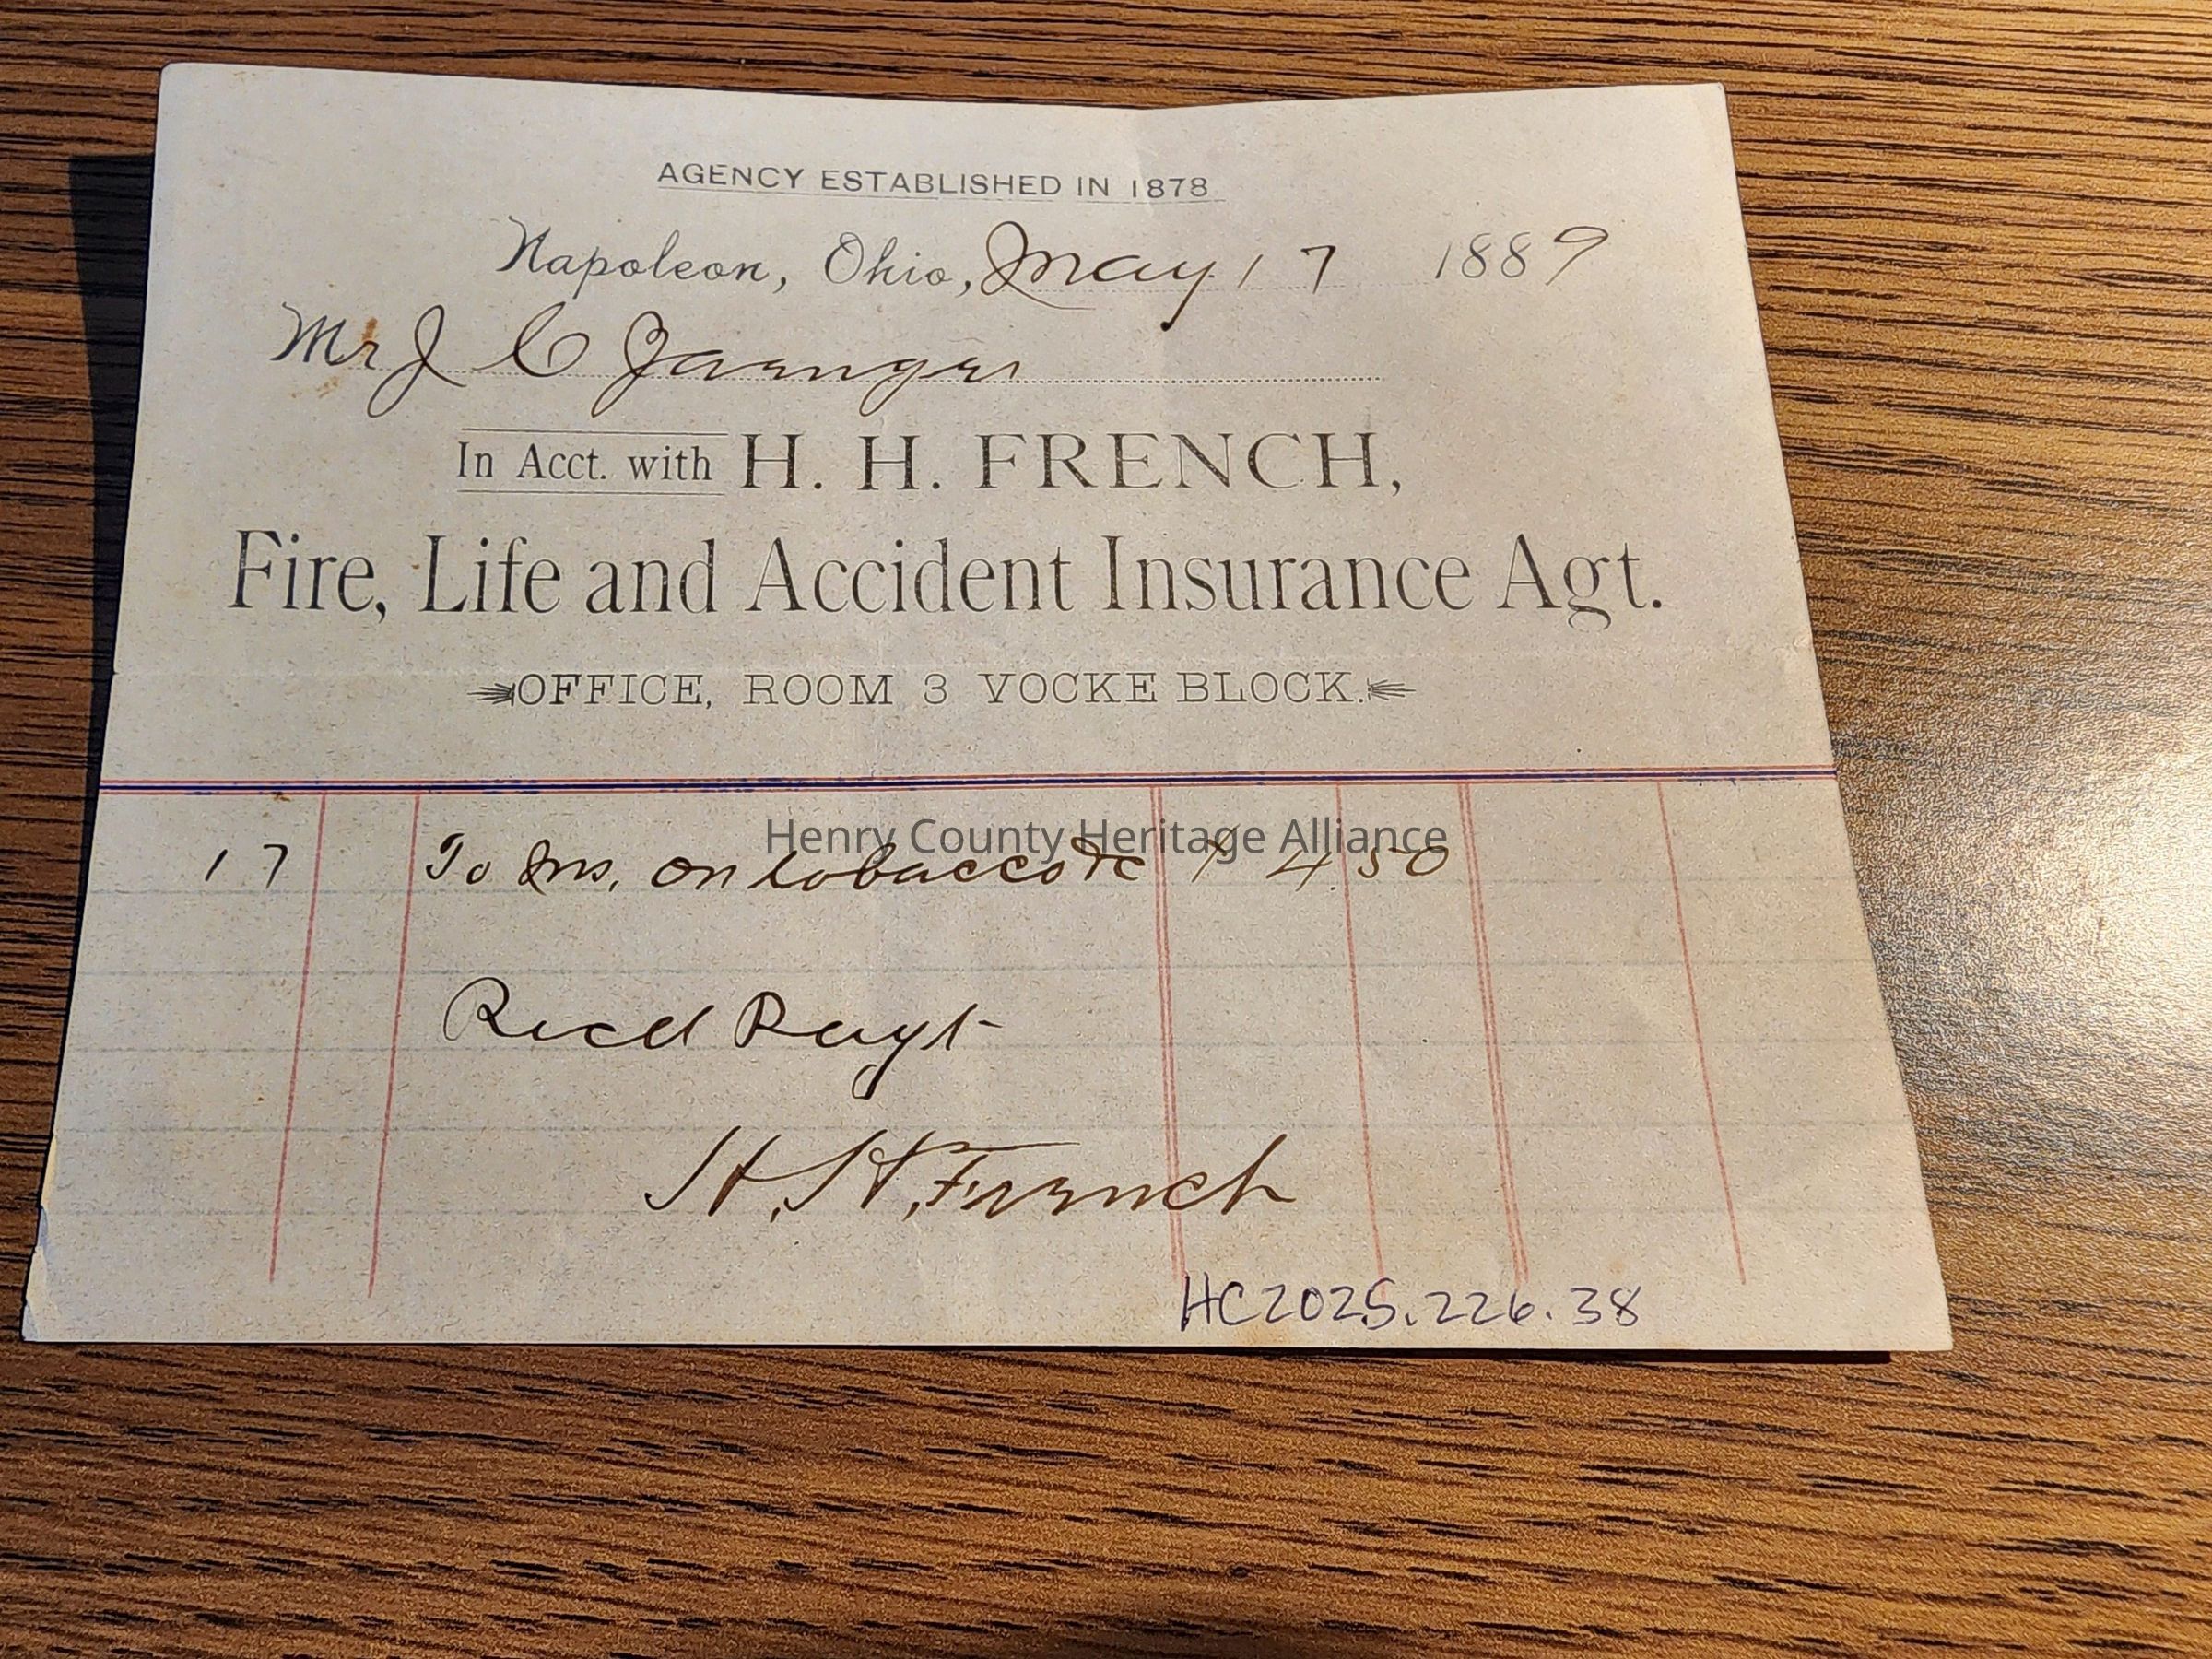 AGENCY ESTABLISHED IN 1878
Napoleon, Ohio, May 17 1889
Mr J C
In Acct. with H. H. FRENCH,
Fire, Life and Accident Insurance Agt.
OFFICE, ROOM 3 VOCKE BLOCK.
Henry County Heritage Alliance
17 To Ins. on tobacco &c $ 4.50
Recd Payt
H. H. French
HC2025.226.38